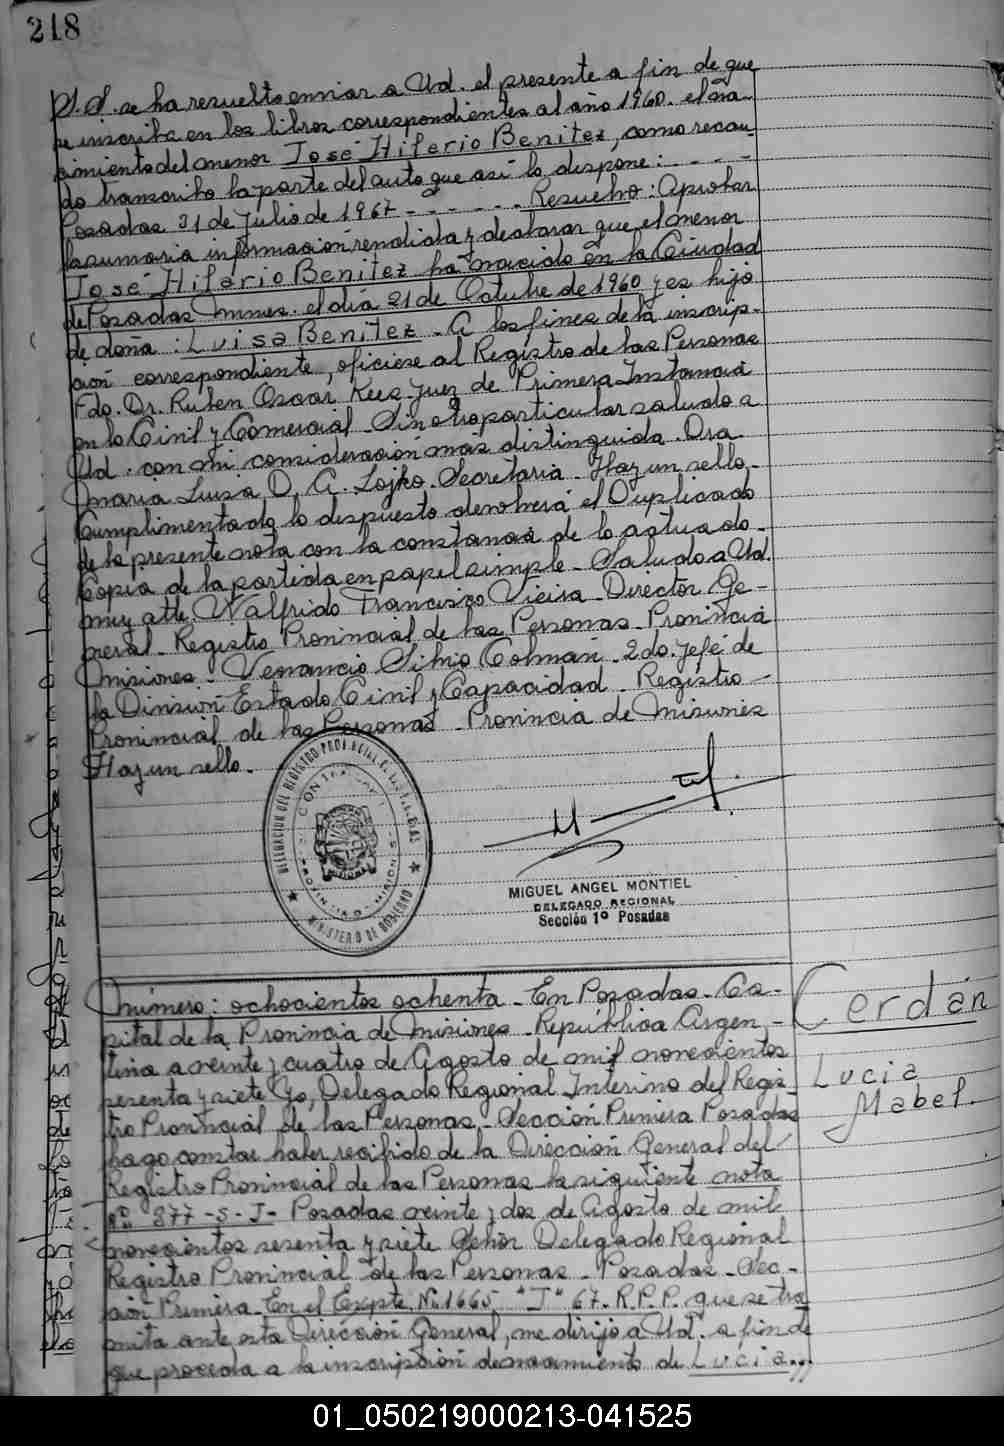 218
S.S. se ha resuelto enviar a Ud. el presente a fin de que
se inscriba en los libros correspondientes al año 1960. el na-
cimiento del menor José Hilario Benitez, como recau-
do transcribo la parte del auto que así lo dispone: - - - -
Posadas 31 de Julio de 1967 - - - - - - Resuelvo: Aprobar
la sumaria información rendida y declarar que el menor
José Hilario Benitez ha nacido en la Ciudad
de Posadas Mnes. el día 21 de Octubre de 1960 y es hijo
de doña: Luisa Benitez - A los fines de la inscrip-
ción correspondiente, ofíciese al Registro de las Personas
Fdo. Dr. Ruben Oscar Rees Juez de Primera Instancia
en lo Civil y Comercial - Sin otro particular saludo a
Ud. con mi consideración mas distinguida. Dra.
Maria Luisa D. A. Lojko. Secretaria - Hay un sello -
Cumplimentado lo dispuesto devolverá el Duplicado
de la presente nota con la constancia de lo actuado -
Copia de la partida en papel simple - Saludo a Ud.
muy atte. Walfrido Francisco Vieira - Director Ge-
neral - Registro Provincial de las Personas - Provincia
Misiones - Venancio Silvio Colman - 2do. Jefe de
la División Estado Civil y Capacidad - Registro -
Provincial de las Personas - Provincia de Misiones
Hay un sello -
DELEGACION DEL REGISTRO PROVINCIAL DE LAS PERSONAS
MINISTERIO DE GOBIERNO
MIGUEL ANGEL MONTIEL
DELEGADO REGIONAL
Sección 1º Posadas
Número: ochocientos ochenta - En Posadas - Ca-
pital de la Provincia de Misiones - República Argen-
tina a veinte y cuatro de Agosto de mil novecientos
sesenta y siete Yo, Delegado Regional Interino del Regis
tro Provincial de las Personas, - Sección Primera Posadas
hago constar haber recibido de la Dirección General del
Registro Provincial de las Personas la siguiente nota
nº 377-S-J- Posadas veinte y dos de Agosto de mil
novecientos sesenta y siete Señor Delegado Regional
Registro Provincial de las Personas - Posadas - Sec-
ción Primera - En el Expte. Nº 1665 "J" 67 - R.P.P. que se tra
mita ante esta Dirección General, me dirijo a Ud. a fin de
que proceda a la inscripción de nacimiento de Lucia
Cerdán
Lucia
Mabel.
01_050219000213-041525